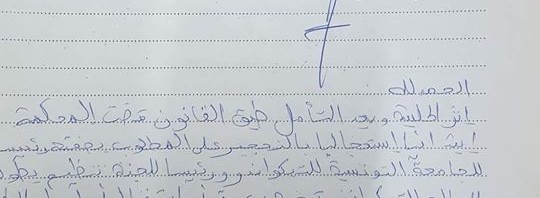 الحمد لله
إثر الطلبية وبعد التأمل طبق القانون قضت المحكمة
ابتدائيا استعجاليا بالتحجير على المطلوب بصفته رئيس
للجامعة التونسية للتيكواندو ورئيسا للجنة تنظيم بطو